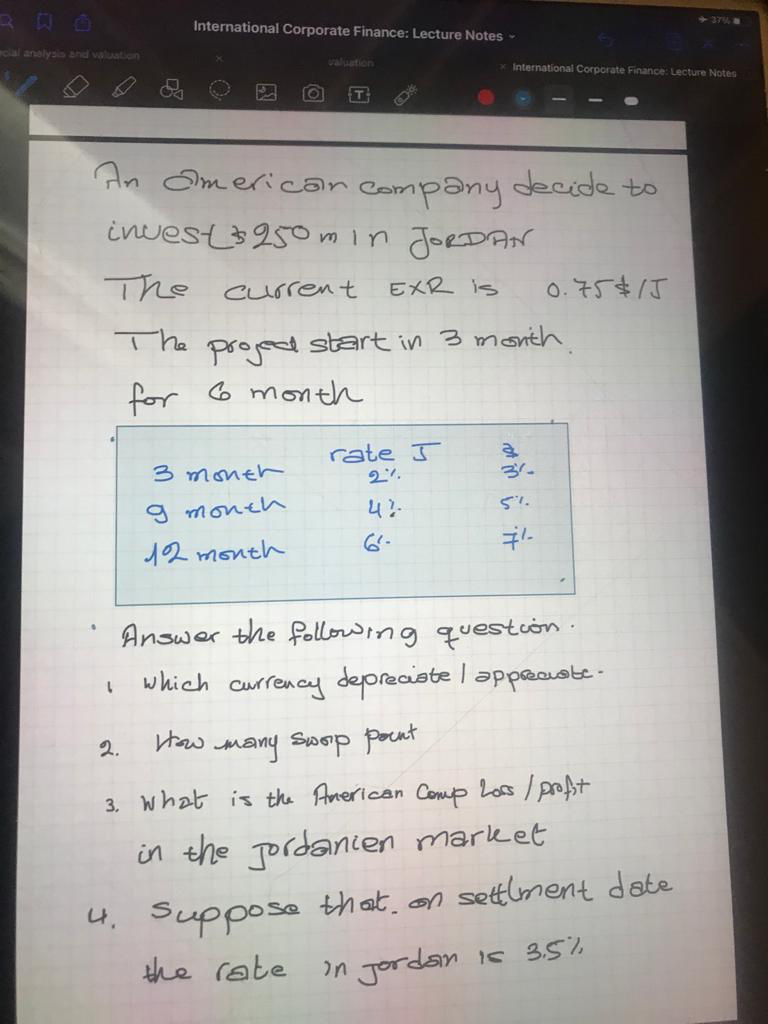 37%
International Corporate Finance: Lecture Notes
cial analysis and valuation
valuation
International Corporate Finance: Lecture Notes
T
An American company decide to
invest $250 m in JORDAN
The current EXR is 0.75$/J
The project start in 3 month.
for 6 month
rate J $
3 month 2% 3%
9 month 4% 5%
12 month 6% 7%
Answer the following question.
1 which currency depreciate / appreciate.
2. How many swap point
3. What is the American Comp Loss / profit
in the Jordanien market
4. Suppose that on settlment date
the rate in jordan is 3.5%